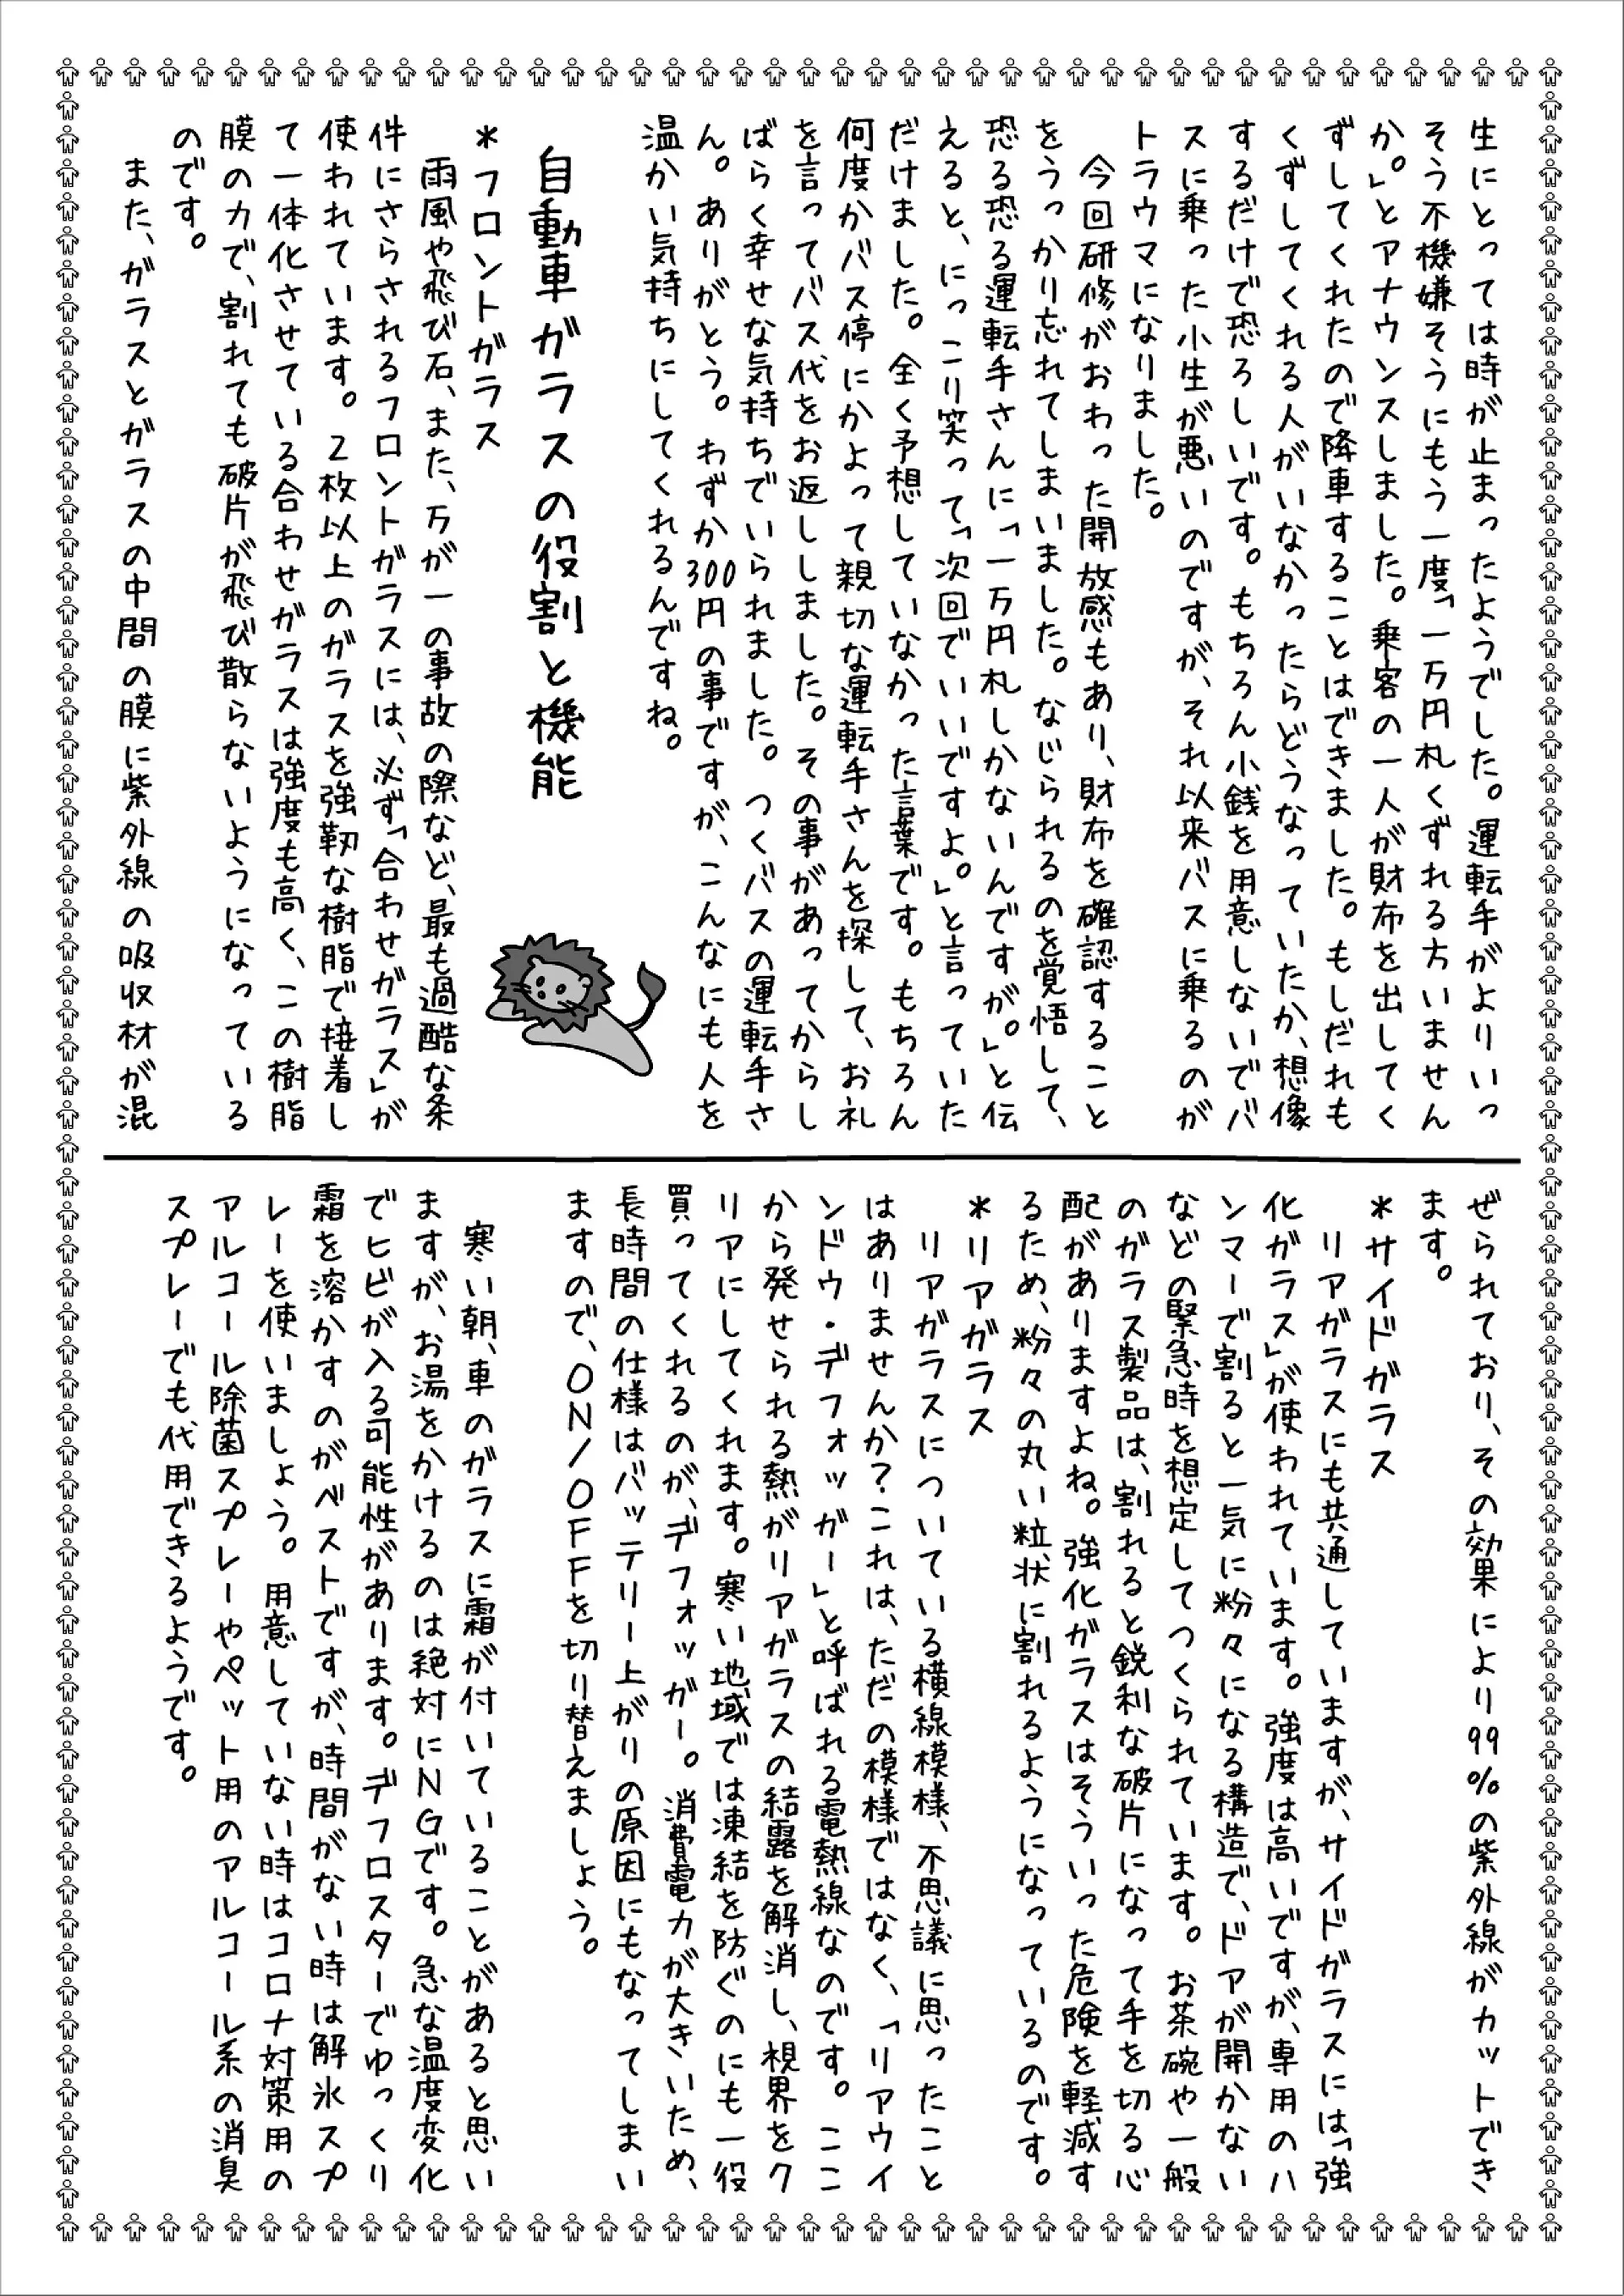 生にとっては時が止まったようでした。運転手がよりいっ
そう不機嫌そうにもう一度「一万円札くずれる方いません
か。」とアナウンスしました。乗客の一人が財布を出してく
ずしてくれたので降車することはできました。もしだれも
くずしてくれる人がいなかったらどうなっていたか、想像
するだけで恐ろしいです。もちろん小銭を用意しないでバ
スに乗った小生が悪いのですが、それ以来バスに乗るのが
トラウマになりました。
今回研修がおわった開放感もあり、財布を確認すること
をうっかり忘れてしまいました。なじられるのを覚悟して、
恐る恐る運転手さんに「一万円札しかないんですが。」と伝
えると、にっこり笑って「次回でいいですよ。」と言っていた
だけました。全く予想していなかった言葉です。もちろん
何度かバス停にかよって親切な運転手さんを探して、お礼
を言ってバス代をお返ししました。その事があってからし
ばらく幸せな気持ちでいられました。つくバスの運転手さ
ん。ありがとう。わずか300円の事ですが、こんなにも人を
温かい気持ちにしてくれるんですね。
自動車ガラスの役割と機能
＊フロントガラス
雨風や飛び石、また、万が一の事故の際など、最も過酷な条
件にさらされるフロントガラスには、必ず「合わせガラス」が
使われています。2枚以上のガラスを強靭な樹脂で接着し
て一体化させている合わせガラスは強度も高く、この樹脂
膜の力で、割れても破片が飛び散らないようになっている
のです。
また、ガラスとガラスの中間の膜に紫外線の吸収材が混
ぜられており、その効果により99%の紫外線がカットでき
ます。
＊サイドガラス
リアガラスにも共通していますが、サイドガラスには「強
化ガラス」が使われています。強度は高いですが、専用のハ
ンマーで割ると一気に粉々になる構造で、ドアが開かない
などの緊急時を想定してつくられています。お茶碗や一般
のガラス製品は、割れると鋭利な破片になって手を切る心
配がありますよね。強化ガラスはそういった危険を軽減す
るため、粉々の丸い粒状に割れるようになっているのです。
＊リアガラス
リアガラスについている横線模様、不思議に思ったこと
はありませんか？これは、ただの模様ではなく、「リアウイ
ンドウ・デフォッガー」と呼ばれる電熱線なのです。ここ
から発せられる熱がリアガラスの結露を解消し、視界をク
リアにしてくれます。寒い地域では凍結を防ぐのにも一役
買ってくれるのが、デフォッガー。消費電力が大きいため、
長時間の仕様はバッテリー上がりの原因にもなってしまい
ますので、ON/OFFを切り替えましょう。
寒い朝、車のガラスに霜が付いていることがあると思い
ますが、お湯をかけるのは絶対にNGです。急な温度変化
でヒビが入る可能性があります。デフロスターでゆっくり
霜を溶かすのがベストですが、時間がない時は解氷スプ
レーを使いましょう。用意していない時はコロナ対策用の
アルコール除菌スプレーやペット用のアルコール系の消臭
スプレーでも代用できるようです。